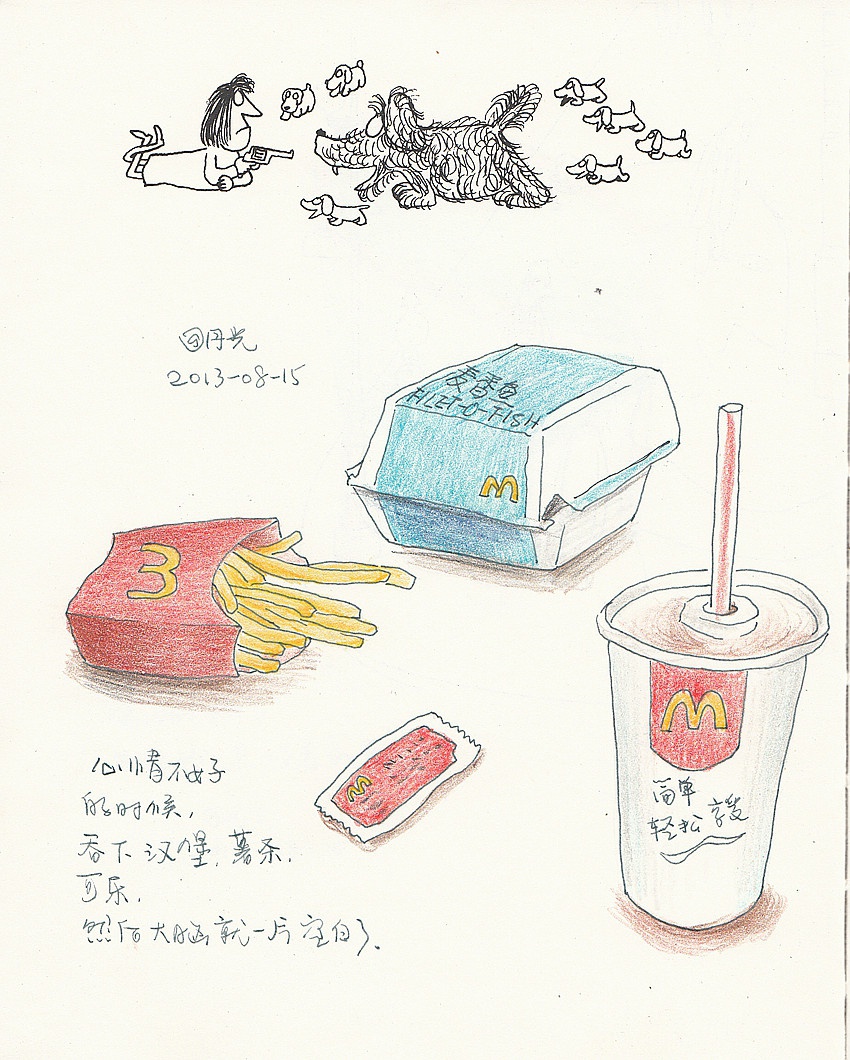 @月光
2013-08-15
麦香鱼
FILET-O-FISH
M
M
简单
轻松享受
心情不好
的时候,
吞下汉堡,薯条,
可乐,
然后大脑就一片空白了.